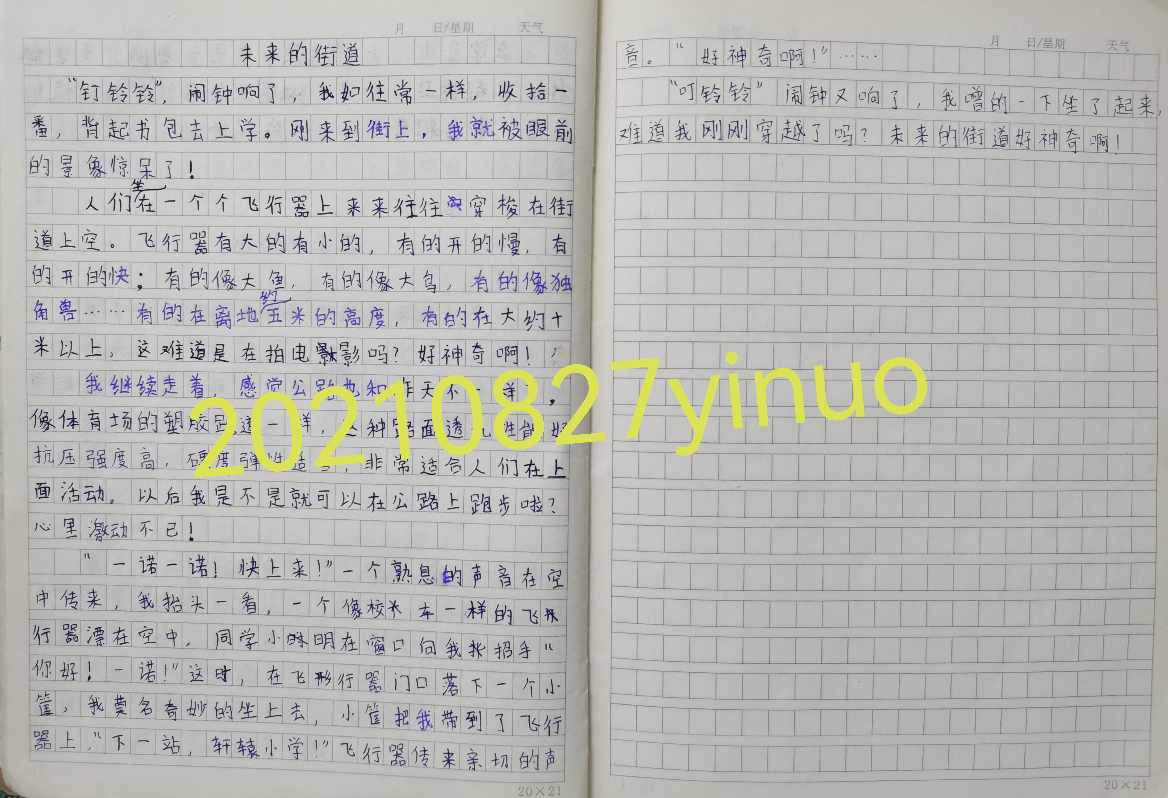 月 日/星期 天气
未来的街道
“钉铃铃”，闹钟响了，我如往常一样，收拾一
番，背起书包去上学。刚来到街上，我就被眼前
的景像惊呆了！
人们坐在一个个飞行器上来来往往穿梭在街
道上空。飞行器有大的有小的，有的开的慢，有
的开的快；有的像大鱼，有的像大鸟，有的像独
角兽……有的在离地约五米的高度，有的在大约十
米以上，这难道是在拍电影吗？好神奇啊！
我继续走着，感觉公路也和昨天不一样，
像体育场的塑胶跑道一样，这种路面透气性能好
抗压强度高，硬度弹性适当，非常适合人们在上
面活动，以后我是不是就可以在公路上跑步啦？
心里激动不已！
“一诺一诺！快上来！”一个熟息的声音在空
中传来，我抬头一看，一个像校本一样的飞
行器漂在空中，同学小明在窗口向我招手“
你好！一诺！”这时，在飞行器门口落下一个小
筐，我莫名奇妙的坐上去，小筐把我带到了飞行
器上，“下一站，轩辕小学！”飞行器传来亲切的声
20×21
月 日/星期 天气
音。“好神奇啊！”……
“叮铃铃”闹钟又响了，我噌的一下坐了起来，
难道我刚刚穿越了吗？未来的街道好神奇啊！
20×21
20210827yinuo